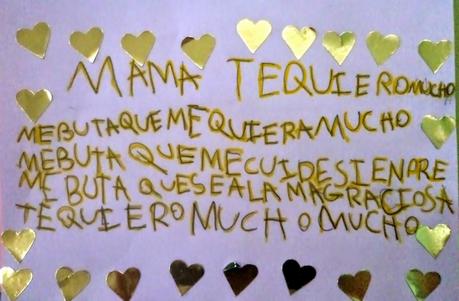 MAMA TEQUIERO MUCHO
MEBUTAQUE MEQUIERA MUCHO
MEBUTA QUE MECUIDESIENPRE
ME BUTA QUESEALA MAGRACIOSA
TEQUIERO MUCHO MUCHO